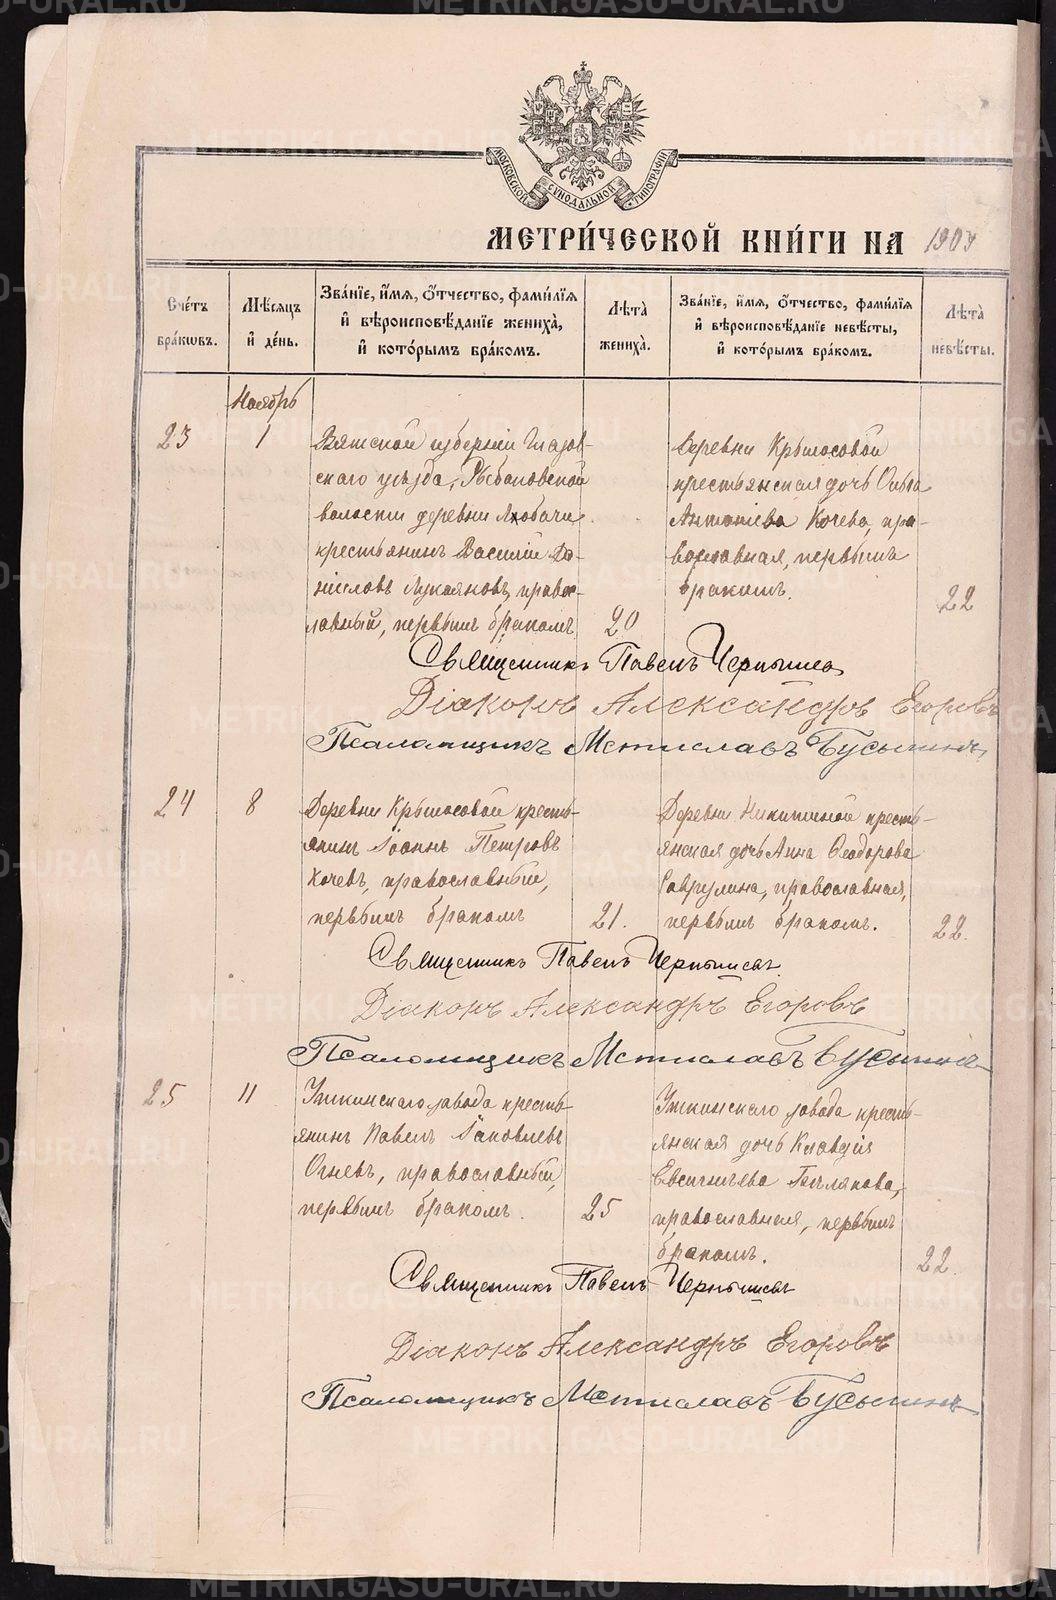 МОСКОВСКОЙ СѴНОДАЛЬНОЙ ТИПОГРАФІИ
МЕТРИ́ЧЕСКОЙ КНИ́ГИ НА 190
Сче́тъ бра́кѡвъ.
Мѣ́сяцъ и҆ де́нь.
Зва́нїе, и҆́мѧ, ѻ҆́тчество, фами́лїѧ и҆ вѣроисповѣ́данїе жениха̀, и҆ кото́рымъ бра́комъ.
Лѣта̀ жениха̀.
Зва́нїе, и҆́мѧ, ѻ҆́тчество, фами́лїѧ и҆ вѣроисповѣ́данїе невѣ́сты, и҆ кото́рымъ бра́комъ.
Лѣта̀ невѣ́сты.
Ноябрь
23
1
Вятской губерніи Глазов-
скаго уѣзда,
волости деревни
крестьянинъ Василій
Лукояновъ, правос-
лавный, первымъ бракомъ
20
Деревни Крылосовой
крестьянская дочь Ольга
Кочева, пра-
вославная, первымъ
бракомъ.
22
Священникъ Павелъ
Діаконъ Александръ Егоровъ
Псаломщикъ Мстиславъ Бусыгинъ
24
8
Деревни Крылосовой кресть-
янинъ Іоаннъ Петровъ
Кочевъ, православный,
первымъ бракомъ
21.
Деревни Никитиной кресть-
янская дочь Анна Ѳеодорова
Гаврулина, православная,
первымъ бракомъ.
22.
Священникъ Павелъ
Діаконъ Александръ Егоровъ
Псаломщикъ Мстиславъ Бусыгинъ
25
11
Уткинскаго завода кресть-
янинъ Павелъ Іаковлевъ
Огневъ, православный,
первымъ бракомъ.
25
Уткинскаго завода кресть-
янская дочь Клавдія
православная, первымъ
бракомъ.
22.
Священникъ Павелъ
Діаконъ Александръ Егоровъ
Псаломщикъ Мстиславъ Бусыгинъ
METRIKI.GASO-URAL.RU